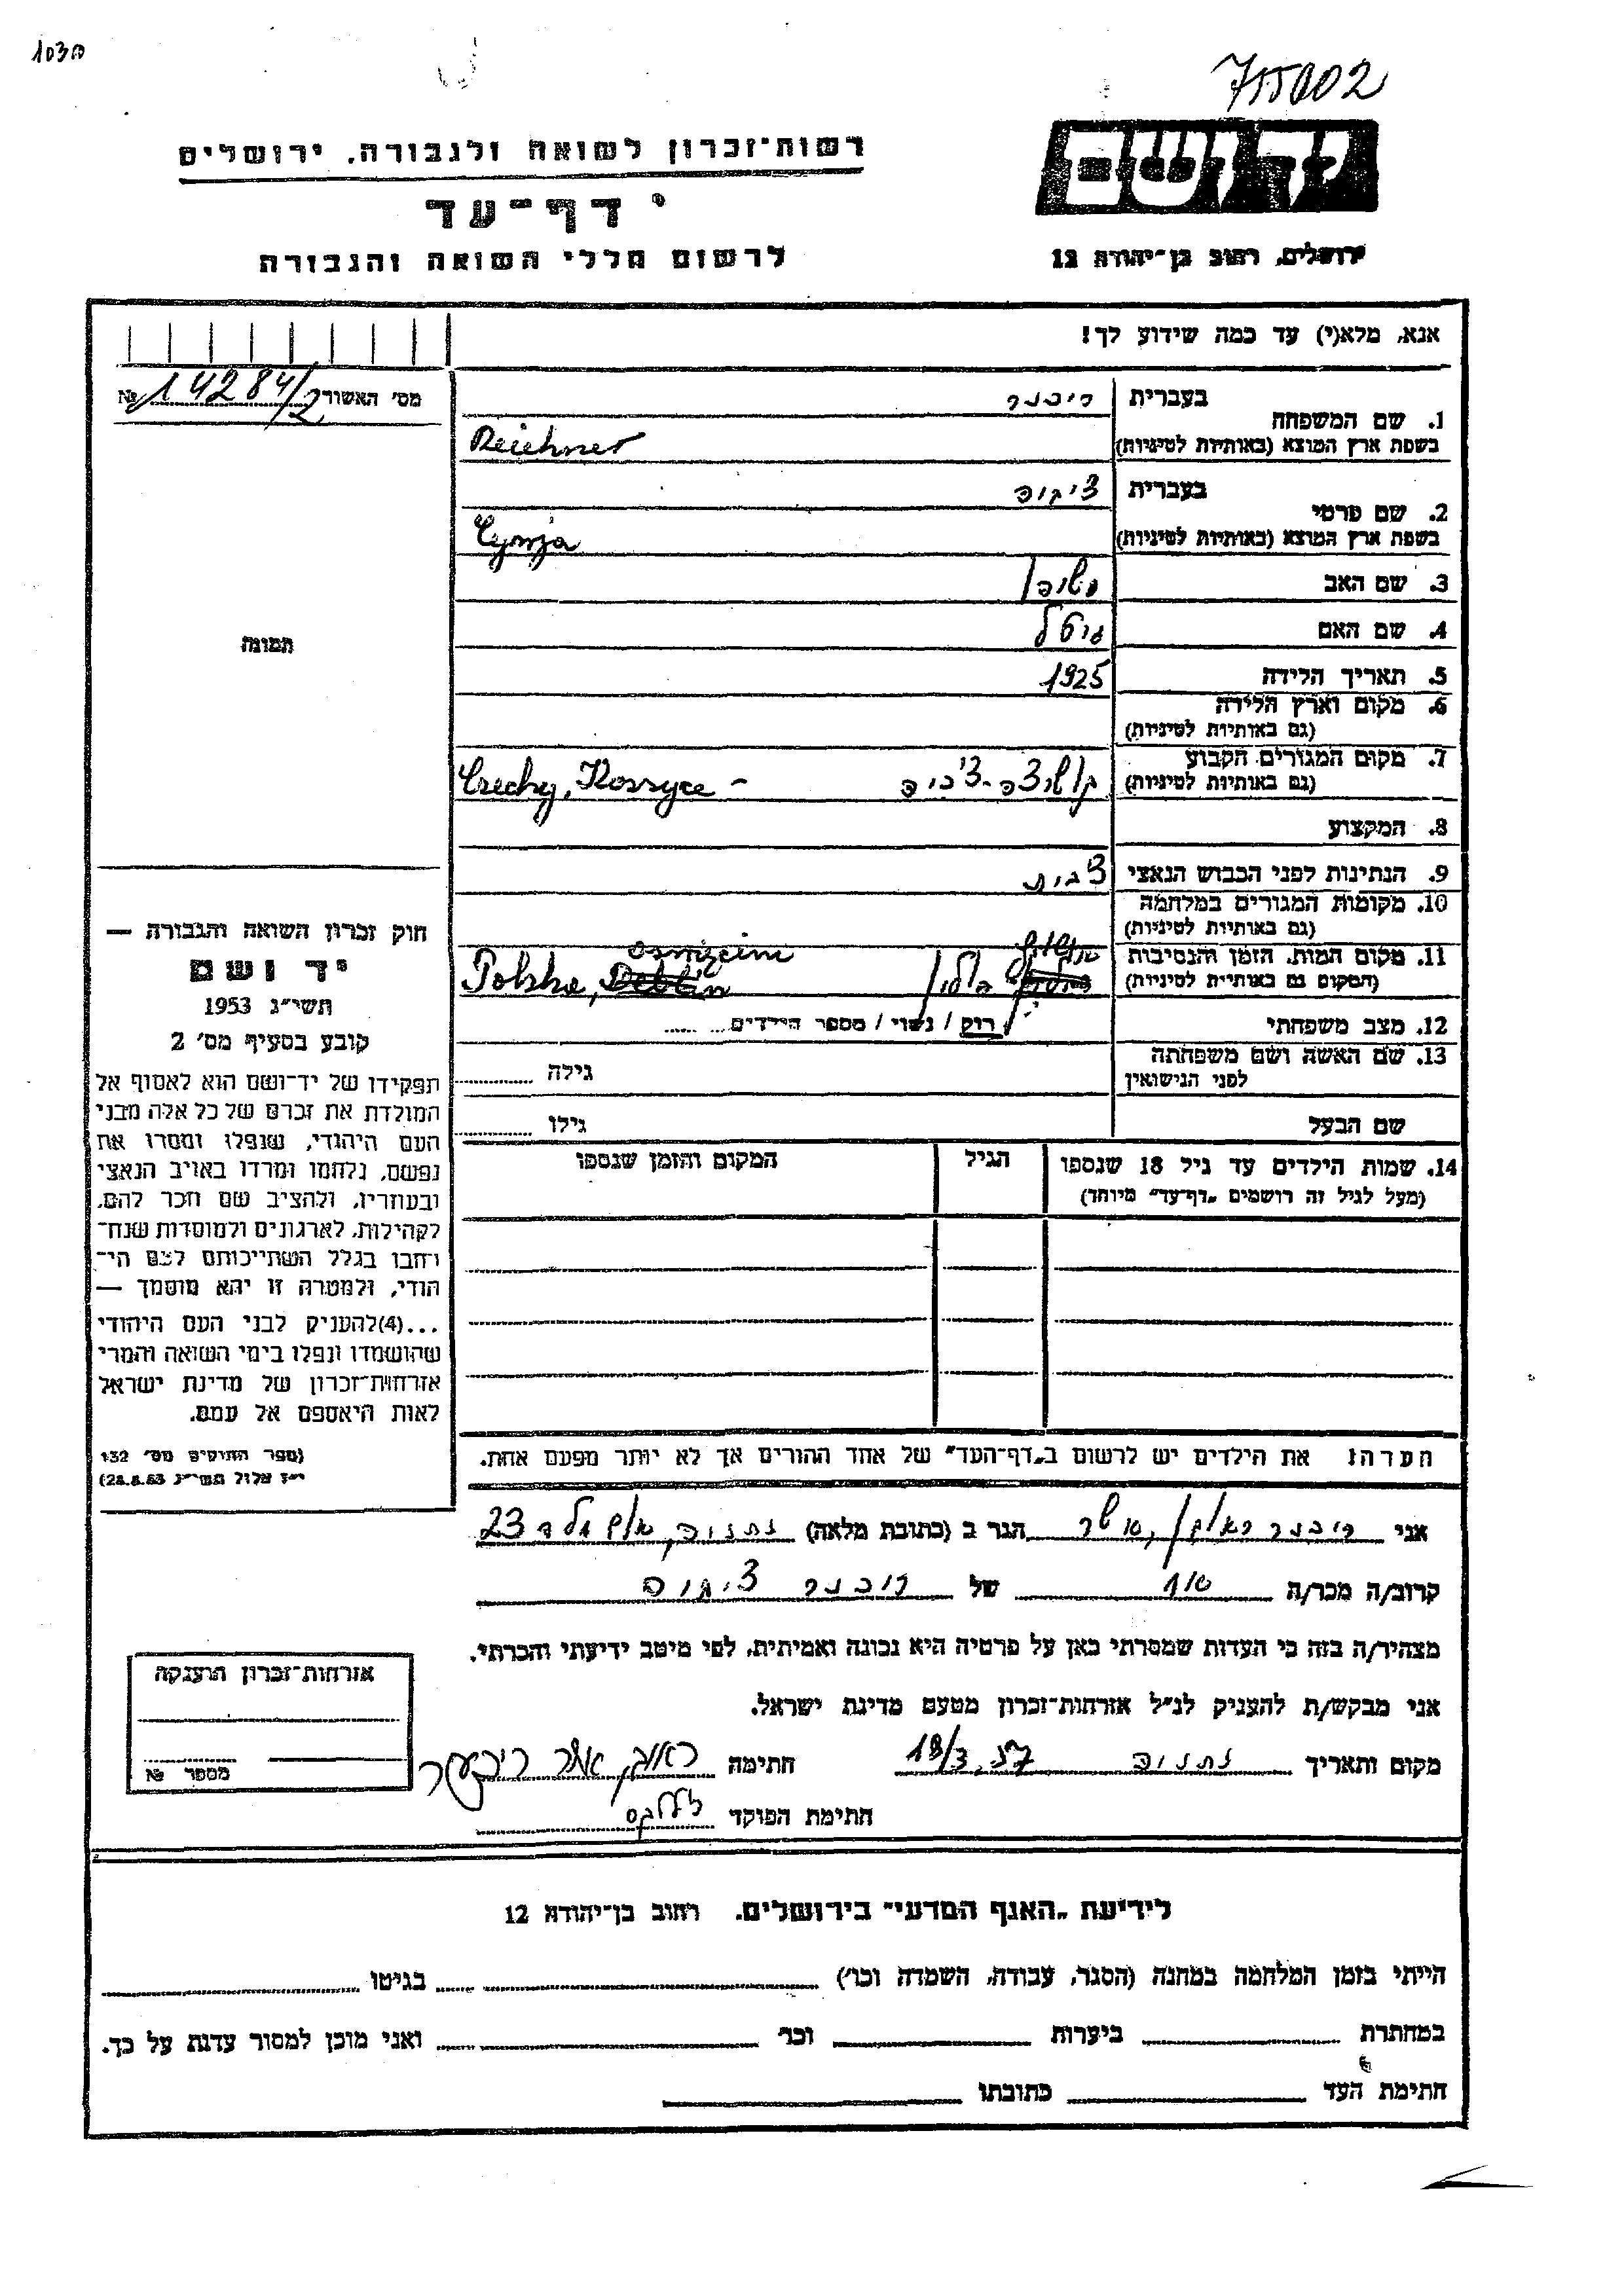 1030
715002
רשות־זכרון לשואה ולגבורה, ירושלים
דף־עד
לרשום חללי השואה והגבורה
יד ושם
ירושלים, רחוב בן־יהודה 12
אנא, מלא(י) עד כמה שידוע לך!
מס׳ האשור № 14284/2
1. שם המשפחה
בעברית
ריכנר
בשפת ארץ המוצא (באותיות לטיניות)
Reichner
2. שם פרטי
בעברית
בשפת ארץ המוצא (באותיות לטיניות)
3. שם האב
4. שם האם
גיטל
5. תאריך הלידה
1925
6. מקום וארץ הלידה
(גם באותיות לטיניות)
7. מקום המגורים הקבוע
(גם באותיות לטיניות)
Czechy, Koszyce -
8. המקצוע
9. הנתינות לפני הכבוש הנאצי
10. מקומות המגורים במלחמה
(גם באותיות לטיניות)
11. מקום המות, הזמן והנסיבות
(המקום גם באותיות לטיניות)
Polska, Deblin
12. מצב משפחתי
רוק / נשוי / מספר הילדים
13. שם האשה ושם משפחתה
לפני הנישואין
גילה
שם הבעל
גילו
14. שמות הילדים עד גיל 18 שנספו
(מעל לגיל זה רושמים „דף־עד״ מיוחד)
הגיל
המקום והזמן שנספו
הערה: את הילדים יש לרשום ב„דף־העד״ של אחד ההורים אך לא יותר מפעם אחת.
תמונה
חוק זכרון השואה והגבורה —
יד ושם
תשי״ג 1953
קובע בסעיף מס׳ 2
תפקידו של יד־ושם הוא לאסוף אל
המולדת את זכרם של כל אלה מבני
העם היהודי, שנפלו ומסרו את
נפשם, נלחמו ומרדו באויב הנאצי
ובעוזריו, ולהציב שם וזכר להם,
לקהילות, לארגונים ולמוסדות שנח־
רחבו בגלל השתייכותם לעם הי־
הודי, ולמטרה זו יהא מוסמך —
...(4)להעניק לבני העם היהודי
שהושמדו ונפלו בימי השואה והמרי
אזרחות־זכרון של מדינת ישראל
לאות היאספם אל עמם.
(ספר החוקים מס׳ 132
י״ז אלול תשי״ג 28.8.53)
אני ריכנר ראובן, אשר הגר ב (כתובת מלאה) נתניה, 23
קרוב/ה מכר/ה של ריכנר
מצהיר/ה בזה כי העדות שמסרתי כאן על פרטיה היא נכונה ואמיתית, לפי מיטב ידיעתי והכרתי.
אני מבקש/ת להעניק לנ״ל אזרחות־זכרון מטעם מדינת ישראל.
מקום ותאריך נתניה 18/3.57 חתימה ראובן אשר ריכנער
חתימת הפוקד
אזרחות־זכרון הוענקה
מספר №
לידיעת „האגף המדעי״ בירושלים, רחוב בן־יהודה 12
הייתי בזמן המלחמה במחנה (הסגר, עבודה, השמדה וכו׳) בגיטו
במחתרת ביערות וכו׳ ואני מוכן למסור עדות על כך.
חתימת העד כתובתו